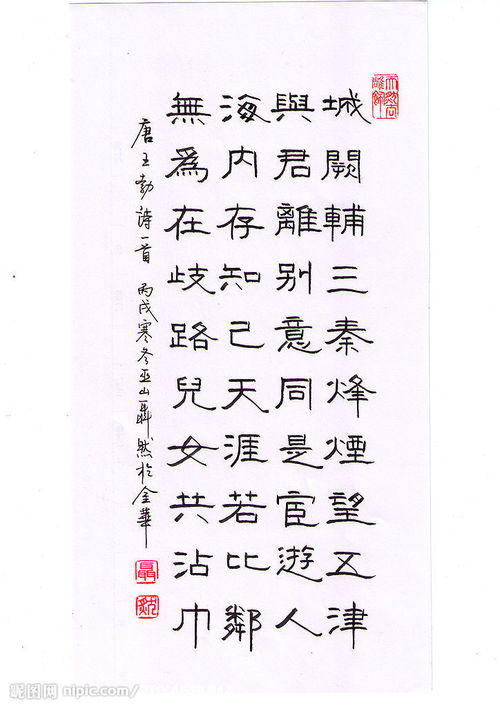 城闕輔三秦烽煙望五津
與君離别意同是宦遊人
海内存知己天涯若比鄰
無爲在歧路兒女共沾巾
唐王勃詩一首 丙戌寒冬巫山聶然於金華
聶
昵图网 nipic.com/